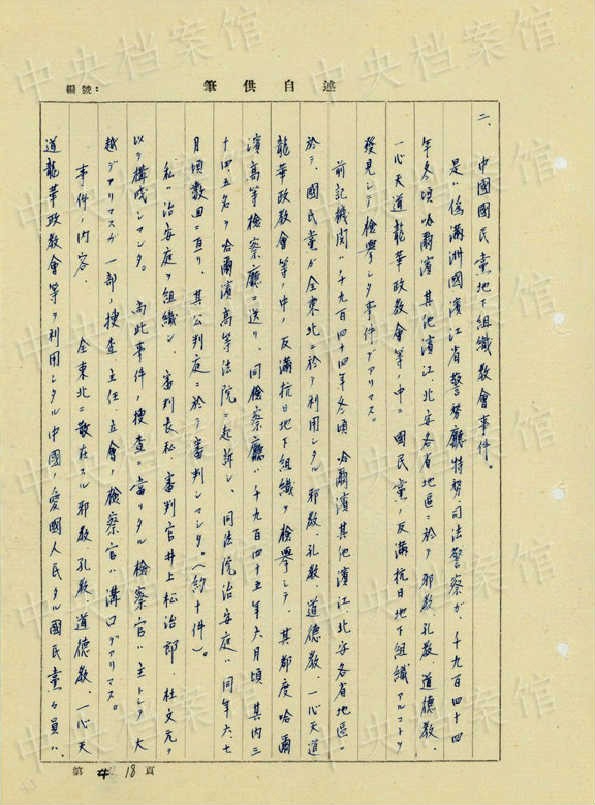 編號：
筆供自述
二、中國國民党地下組織教會事件。
是ハ偽満洲國濱江省警务廳特务、司法警察ガ、千九百四十四
年冬頃哈爾濱其他濱江、北安各省地區ニ於テ邪教、孔教、道德教、
一心天道龍華政教會等ノ中ニ國民党ノ反満抗日地下組織アルコトヲ
發見シテ檢擧シタ事件デアリマス。
前記機関ハ千九百四十四年冬頃哈爾濱其他濱江、北安各省地區ニ
於テ、國民党ガ全東北ニ於テ利用シタル邪教、孔教、道德教、一心天道
龍華政教會等ノ中ノ反満抗日地下組織ヲ檢擧シテ、其都度哈爾
濱高等檢察廳ニ送リ、同檢察廳ハ千九百四十五年六月頃其内三
十四、五名ヲ哈爾濱高等法院ニ起訴シ、同法院治安庭ハ同年六、七
月頃数回ニ亘リ、其公判庭ニ於テ審判シマシタ。（約十件）。
私ハ治安庭ヲ組織シ、審判長私、審判官井上松治郎、杜文克ヲ
以テ構成シマシタ。尚此事件ノ捜査ニ當リタル檢察官ハ主トシテ大
越デアリマスガ一部ノ捜査主任、立會ノ檢察官ハ溝口デアリマス。
事件ノ内容、全東北ニ散在スル邪教、孔教、道德教、一心天
道龍華政教會等ヲ利用シタル中國ノ愛國人民タル國民党々員ハ、
第 18 頁
中央档案馆